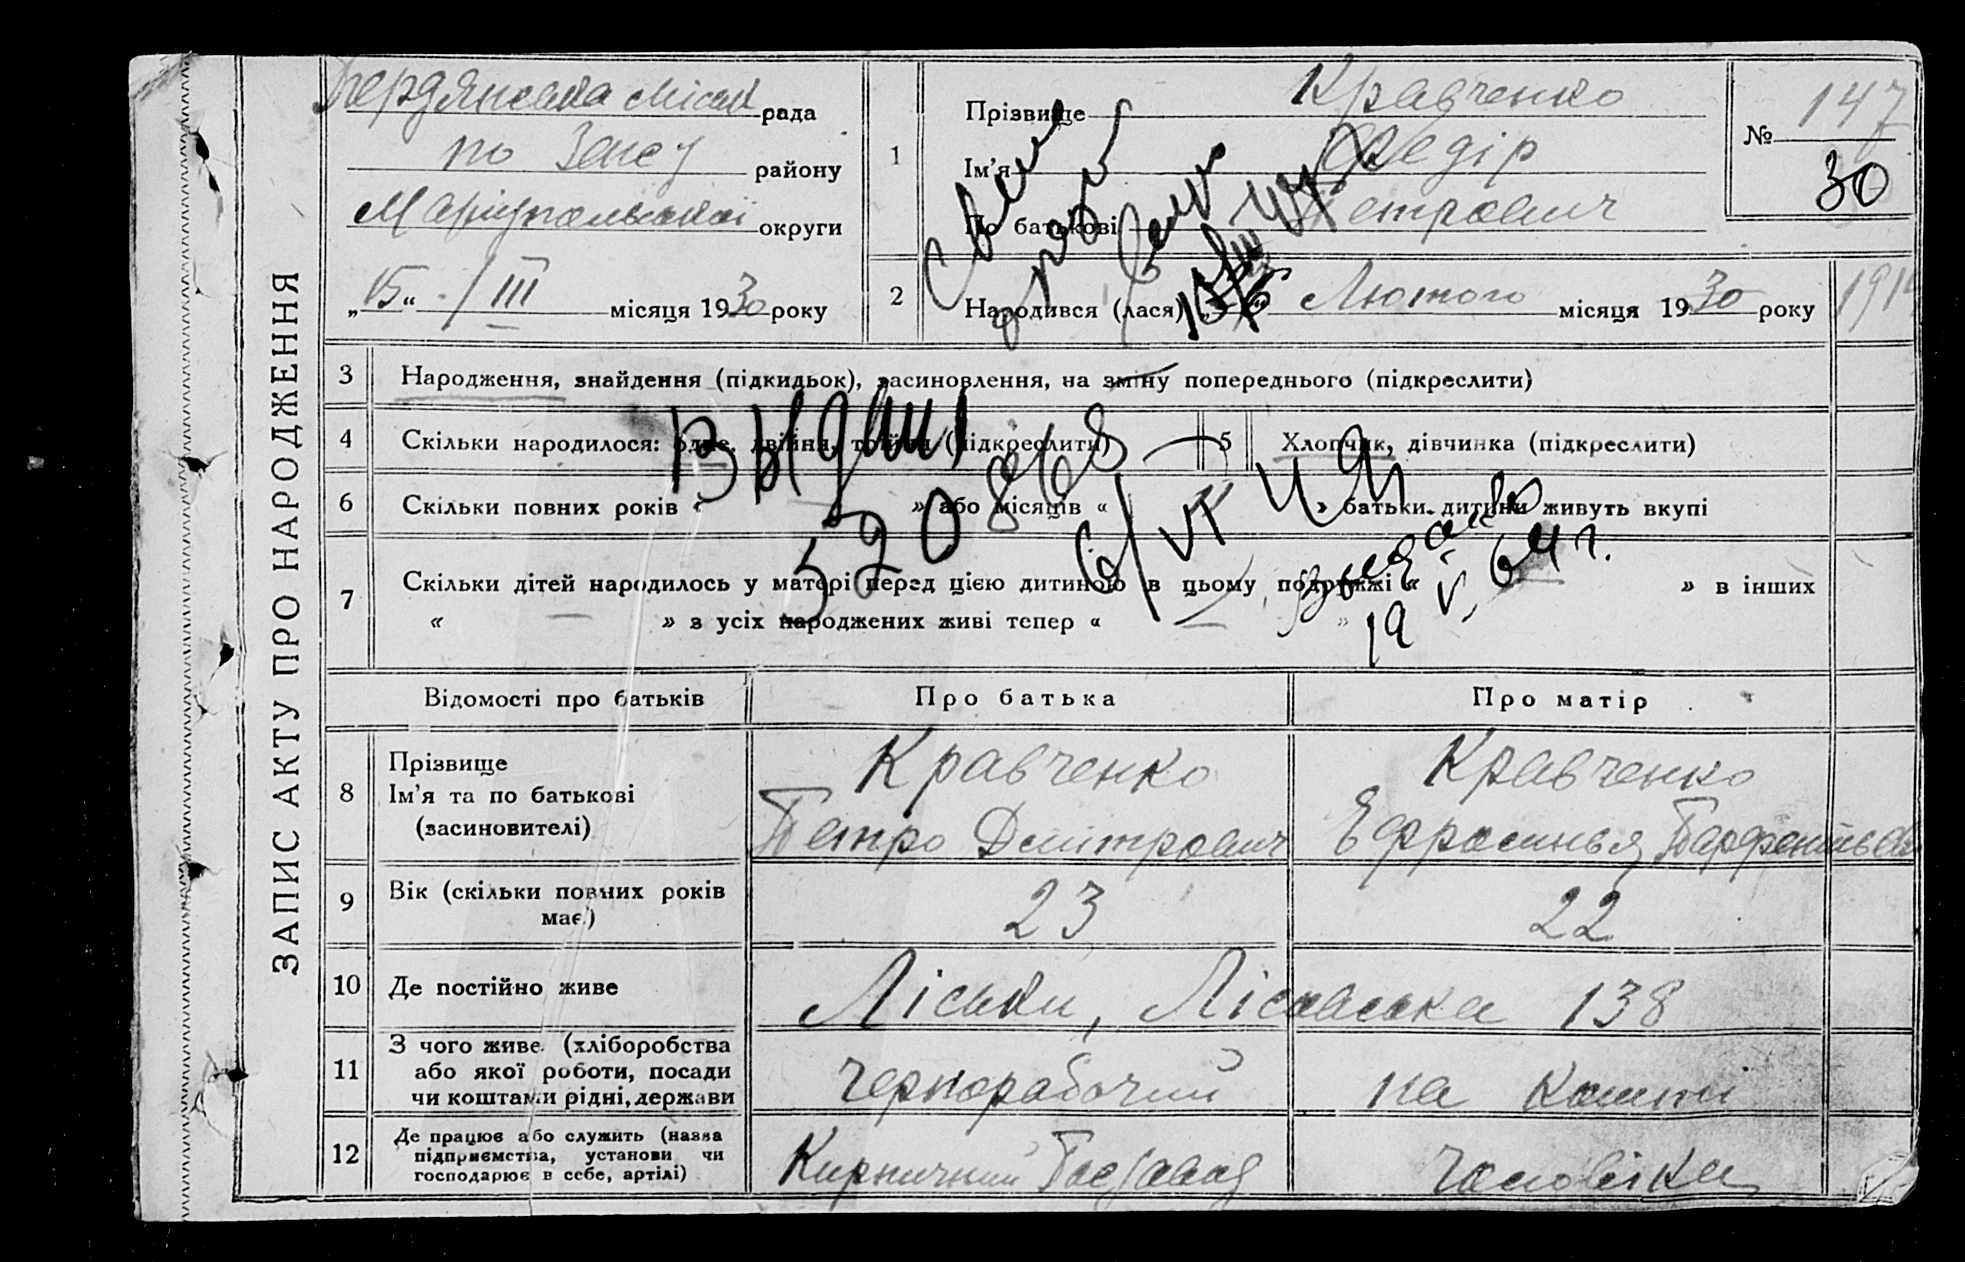 ЗАПИС АКТУ ПРО НАРОДЖЕННЯ
Бердянська міськ рада
по Загсу району
Маріупольської округи
„15“ / III місяця 1930 року
1
Прізвище Кравченко
Ім'я Федір
По батькові Петрович
№ 147
30
2
Народився (лася) „ “ Лютого місяця 1930 року
3
Народження, знайдення (підкидьок), засиновлення, на зміну попереднього (підкреслити)
4
Скільки народилося: одне, двійня, тройня (підкреслити)
5
Хлопчик, дівчинка (підкреслити)
6
Скільки повних років « — » або місяців « » батьки дитини живуть вкупі
7
Скільки дітей народилось у матері перед цією дитиною в цьому подружжі « — » в інших
« — » з усіх народжених живі тепер « — »
Свид
1914
Выдан
520868
6/VI 49
19 V. 64 г.
Відомості про батьків
Про батька
Про матір
8
Прізвище
Ім'я та по батькові
(засиновителі)
Кравченко
Петро Дмитрович
Кравченко
Ефросинья Парфентьев
9
Вік (скільки повних років має)
23
22
10
Де постійно живе
Ліски, Лісковська 138
11
З чого живе (хліборобства
або якої роботи, посади
чи коштами рідні, держави
Чернорабочий
на кошті
12
Де працює або служить (назва
підприємства, установи чи
господарює в себе, артілі)
Кирпичний Госзавод
чоловіка